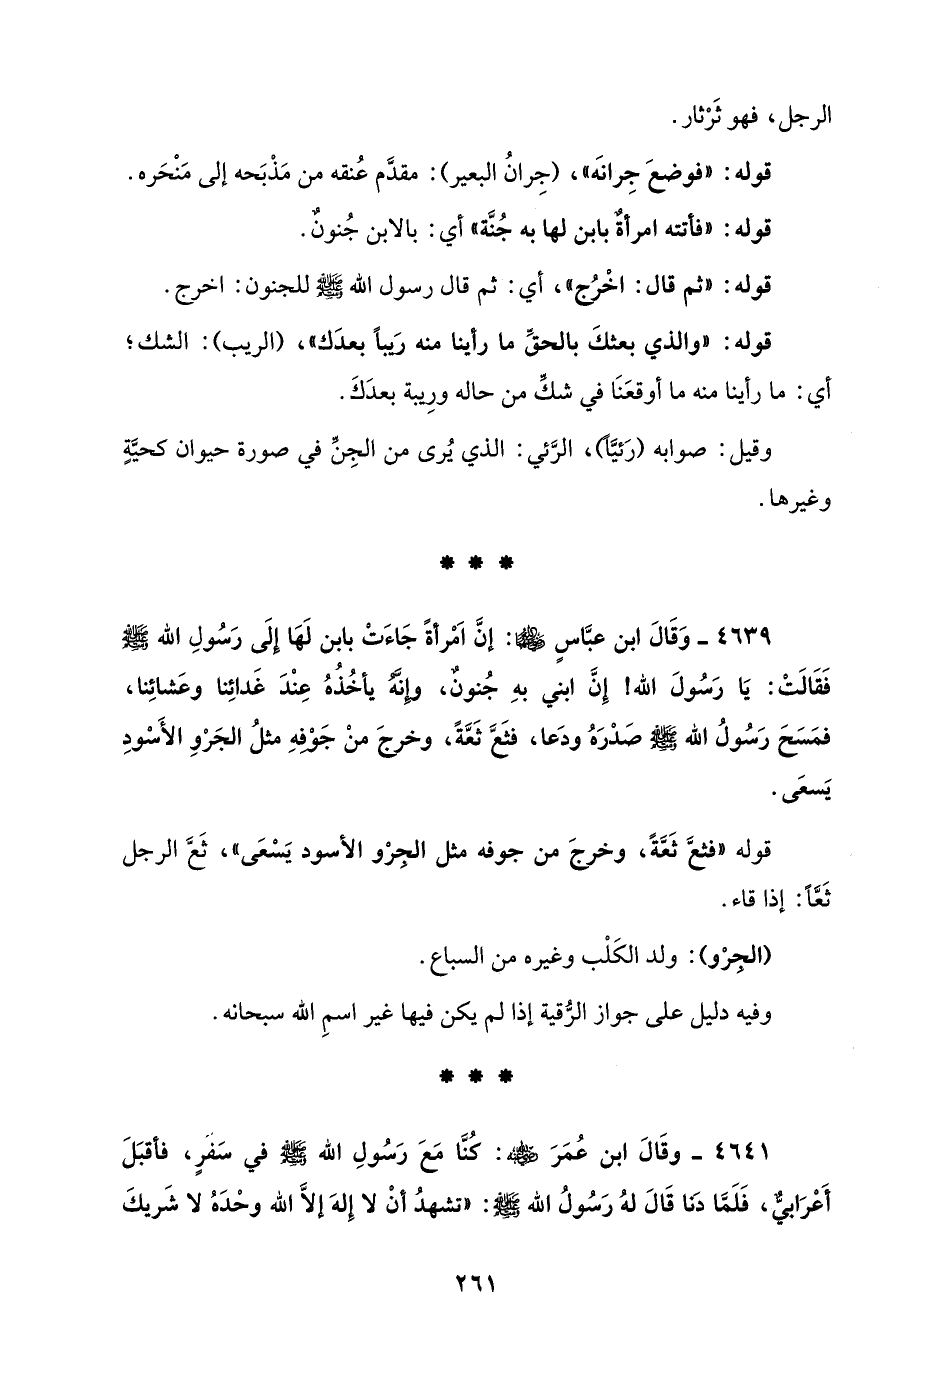 الرجل، فهو ثَرْثار.
قوله: «فوضعَ جِرانَه»، (جِرانُ البعير): مقدَّم عُنقه من مَذْبَحه إلى مَنْحَره.
قوله: «فأتته امرأةٌ بابن لها به جُنَّة» أي: بالابن جُنونٌ.
قوله: «ثم قال: اخْرُج»، أي: ثم قال رسول الله ﷺ للجنون: اخرج.
قوله: «والذي بعثكَ بالحقِّ ما رأينا منه رَيباً بعدَك»، (الريب): الشك؛
أي: ما رأينا منه ما أوقعَنَا في شكٍّ من حاله ورِيبة بعدَكَ.
وقيل: صوابه (رَئيَّاً)، الرَّئي: الذي يُرى من الجِنِّ في صورة حيوان كحيَّةٍ
وغيرها.
* * *
٤٦٣٩ ـ وَقَالَ ابن عبَّاسٍ ﵄: إنَّ اَمْرأةً جاءَتْ بابن لَهَا إِلَى رَسُولِ الله ﷺ
فَقَالَتْ: يَا رَسُولَ الله! إِنَّ ابني بهِ جُنونٌ، وإنَّهُ يأخُذُهُ عِنْدَ غَدائِنا وعَشائِنا،
فمَسَحَ رَسُولُ الله ﷺ صَدْرَهُ ودَعا، فثَعَّ ثَعَّةً، وخرجَ منْ جَوْفِهِ مثلُ الجَرْوِ الأَسْودِ
يَسعَى.
قوله «فثعَّ ثَعَّةً، وخرجَ من جوفه مثل الجِرْو الأسود يَسْعَى»، ثَعَّ الرجل
ثَعَّاً: إذا قاء.
(الجِرْو): ولد الكَلْب وغيره من السباع.
وفيه دليل على جواز الرُّقية إذا لم يكن فيها غير اسمِ الله سبحانه.
* * *
٤٦٤١ ـ وقَالَ ابن عُمَرَ ﵄: كُنَّا مَعَ رَسُولِ الله ﷺ في سَفَرٍ، فأقبَلَ
أَعْرَابيٌّ، فَلَمَّا دَنا قَالَ لهُ رَسُولُ الله ﷺ: «تشهدُ أنْ لا إلهَ إلاَّ الله وحْدَهُ لا شَريكَ
٢٦١